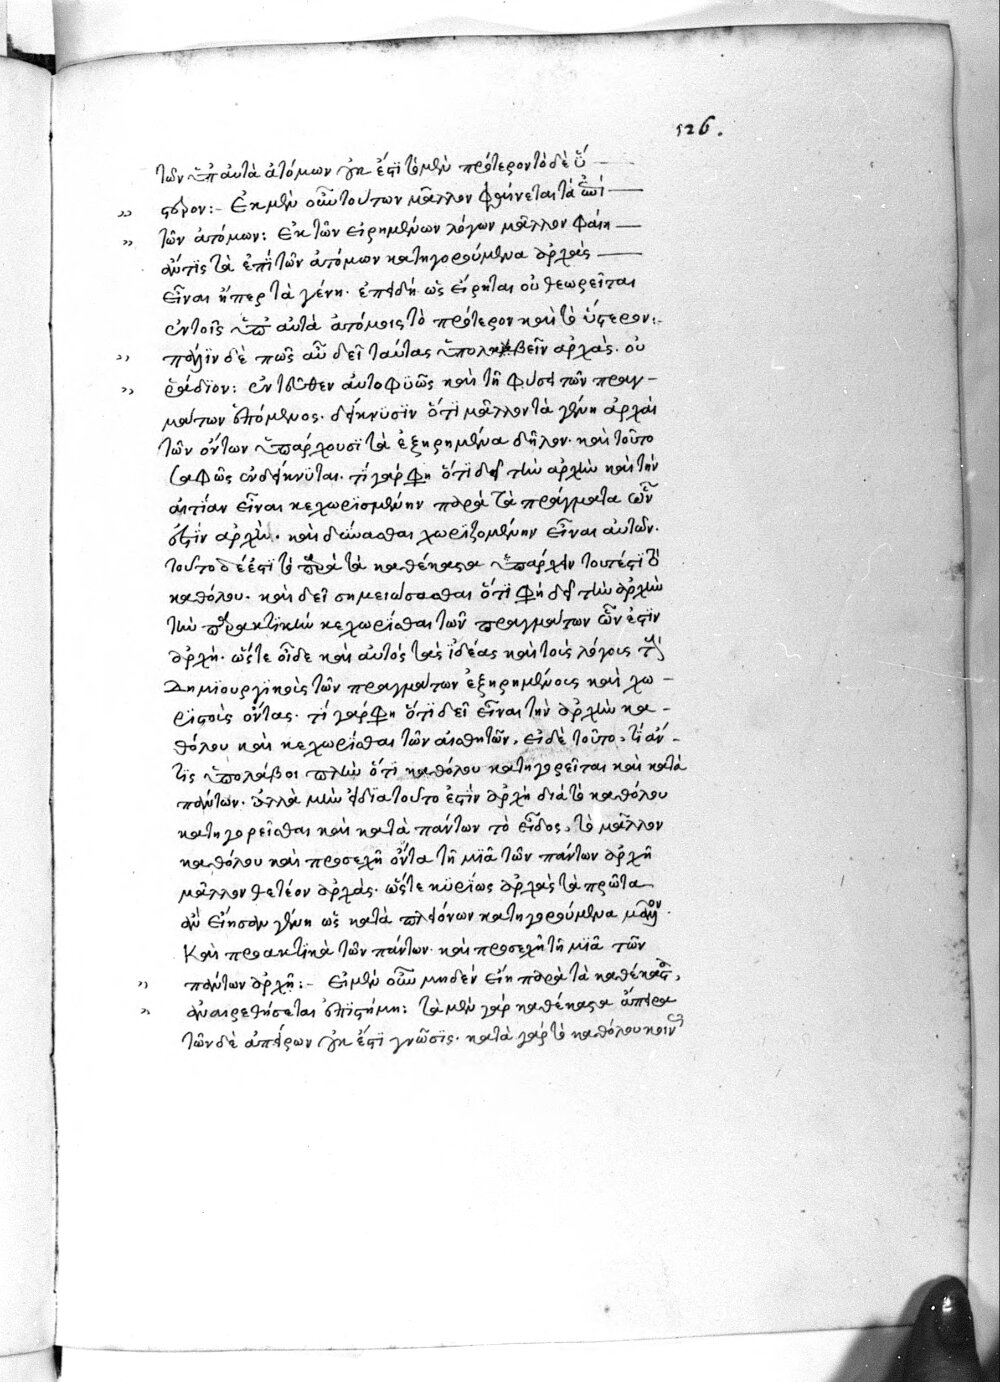 126.
τῶν ὑπ' αὐτὰ ἀτόμων οὐκ ἔστι τὸ μὲν πρότερον τὸ δὲ ὕ
στερον:– Ἐκ μὲν οὖν τούτων μᾶλλον φαίνεται τὰ ἐπὶ
τῶν ἀτόμων: ἐκ τῶν εἰρημένων λόγων μᾶλλον φαίη
ἄν τις τὰ ἐπὶ τῶν ἀτόμων κατηγορούμενα ἀρχὰς
εἶναι ἤπερ τὰ γένη. ἐπειδὴ ὡς εἴρηται οὐ θεωρεῖται
ἐν τοῖς ὑπ' αὐτὰ ἀτόμοις τὸ πρότερον καὶ τὸ ὕστερον:
πάλιν δὲ πῶς αὖ δεῖ ταύτας ὑπολαβεῖν ἀρχάς. οὐ
ῥᾴδϊον: ἐντεῦθεν αὐτοφυῶς καὶ τῇ φύσει τῶν πραγ–
μάτων ἑπόμενος. δείκνυσϊν ὅτϊ μᾶλλον τὰ γένη ἀρχαὶ
τῶν ὄντων ὑπάρχουσϊ τὰ ἐξηρημένα δῆλον. καὶ τοῦτο
σαφῶς ἐνδείκνυται. τί γάρ φη ὅτϊ δεῖ τὴν ἀρχὴν καὶ τὴν
αἰτίαν εἶναι κεχωρϊσμένην παρὰ τὰ πράγματα ὧν
ἐστὶν ἀρχὴ. καὶ δύνασθαι χωρϊζομένην εἶναι αὐτῶν.
τοῦτο δέ ἐστϊ τὸ παρὰ τὰ καθέκαστα ὑπάρχειν τουτέστϊ τὸ
καθόλου. καὶ δεῖ σημειώσασθαι ὅτϊ φὴ δεῖ τὴν ἀρχὴν
τὴν πρακτϊκὴν κεχωρίσθαι τῶν πραγμάτων ὧν ἐστϊν
ἀρχή. ὥστε οἶδε καὶ αὐτὸς τὰς ἰδέας καὶ τοὺς λόγους τοὺς
δημϊουργϊκοὺς τῶν πραγμάτων ἐξηρημένους καὶ χω–
ρϊστοὺς ὄντας. τί γάρ φη ὅτϊ δεῖ εἶναι τὴν ἀρχὴν κα–
θόλου καὶ κεχωρίσθαι τῶν αἰσθητῶν. εἰ δὲ τοῦτο, τί ἄν–
τϊς ὑπολάβοι πλὴν ὅτϊ καθόλου κατηγορεῖται καὶ κατὰ
πάντων. ἀλλὰ μὴν εἰ διὰ τοῦτο ἐστὶν ἀρχὴ διὰ τὸ καθόλου
κατηγορεῖσθαι καὶ κατὰ πάντων τὸ εἶδος, τὸ μᾶλλον
καθόλου καὶ προσεχῆ ὄντα τῇ μϊᾷ τῶν πάντων ἀρχῇ
μᾶλλον θετέον ἀρχάς. ὥστε κυρίως ἀρχὰς τὰ πρῶτα
ἂν εἴησαν γένη ὡς κατὰ πλειόνων κατηγορούμενα μᾶλλον.
Καὶ πρακτϊκὰ τῶν πάντων. καὶ προσεχῆ τῇ μϊᾷ τῶν
πάντων ἀρχῇ:– Εἰ μὲν οὖν μηδὲν εἴη παρὰ τὰ καθέκαστα,
ἀναιρεθήσεται ἐπϊστήμη: τὰ μὲν γὰρ καθέκαστα ἄπειρα
τῶν δὲ ἀπείρων οὐκ ἔστϊ γνῶσϊς. κατὰ γὰρ τὸ καθόλου κοιν